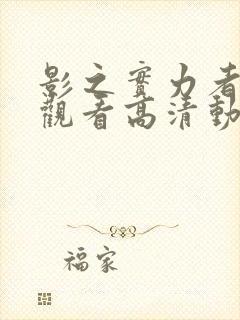 影之實力者
觀看高清動
福家